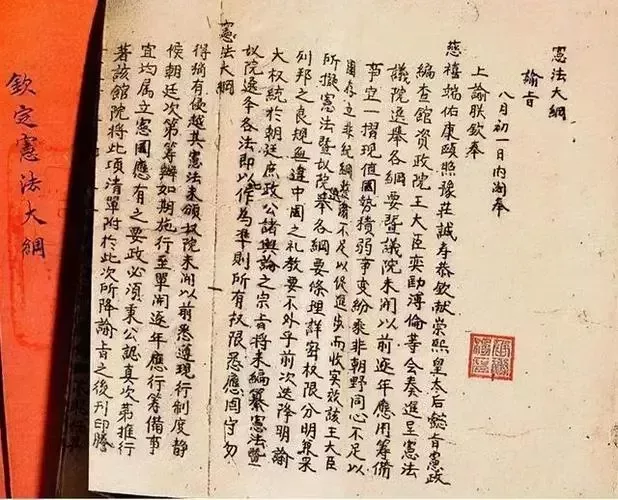 憲法大綱
諭旨
八月初一日内阁奉
上諭朕欽奉
慈禧端佑康頤昭豫莊誠寿恭欽献崇熙皇太后懿旨憲政
編查館資政院王大臣奕劻溥倫等会奏進呈憲法
議院选舉各綱要暨議院未開以前逐年應用筹備
事宜一摺現值國勢積弱事变紛乘非朝野同心不足以
圖存立非紀綱整肅不足以促進步而收实效該王大臣
所擬憲法暨議院選舉各綱要條理詳密权限分明兼采
列邦之良規無違中國之礼教要不外乎前次迭降明諭
大权統於朝廷庶政公諸輿論之宗旨將来編纂憲法暨
議院选举各法即以作為準則所有权限悉應固守勿
憲法大綱
得稍有侵越其憲法未頒議院未開以前悉遵現行制度静
候朝廷次第筹辦如期施行至單開逐年應行筹備事
宜均属立憲國應有之要政必須秉公認真次第推行
著該館院將此項清單附於此次所降諭旨之後刊印謄
欽定憲法大綱